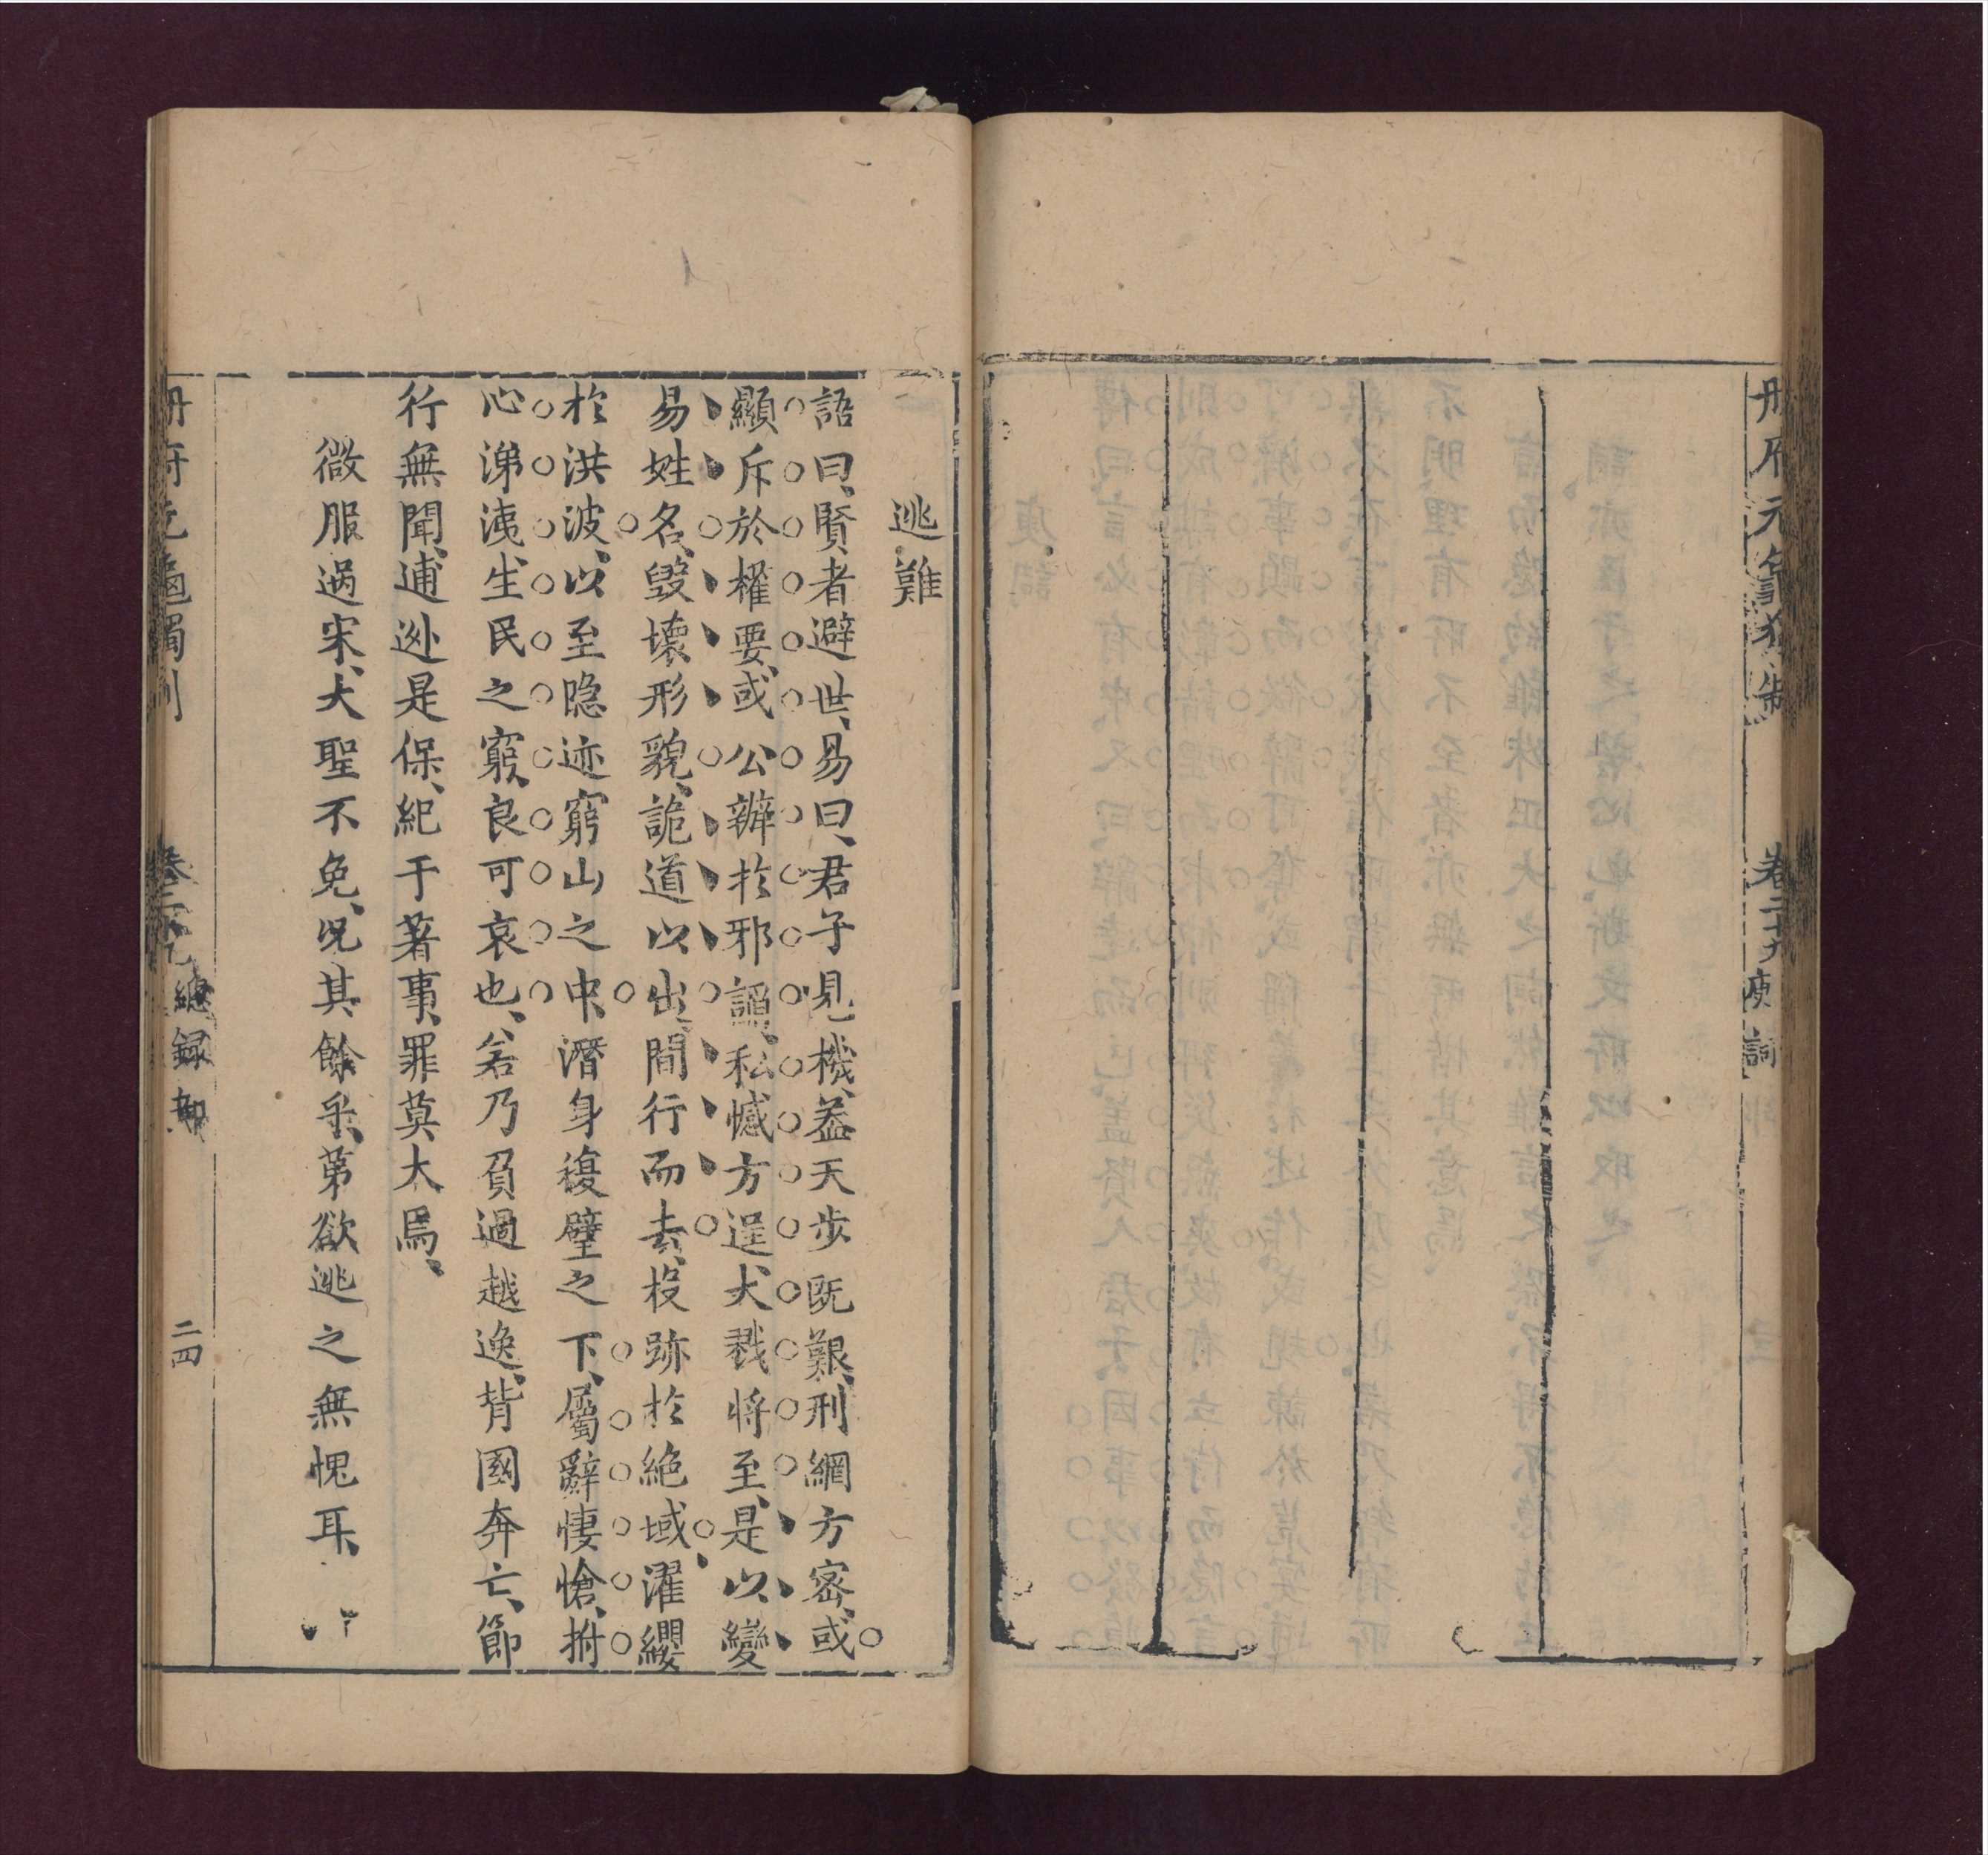 册府元龜獨制
卷二十九
庾詞
逃難
語曰、賢者避世、易曰、君子見機、盖天步既艱、刑網方密、或
顯斥於權要、或公辦於邪謟、私憾方逞、大戮將至、是以變
易姓名、毀壞形貌、詭道以出、間行而去、投跡於絕域、濯纓
於洪波、以至隐迹窮山之中、潛身複壁之下、屬辭悽愴、拊
心涕洟、生民之窮、良可哀也、若乃負過越逸、背國奔亡、節
行無聞、逋逊是保、紀于著事、罪莫大焉、
微服過宋、大聖不免、况其餘乎、第欲逃之無愧耳、
册府元龜獨制
總録部
二四